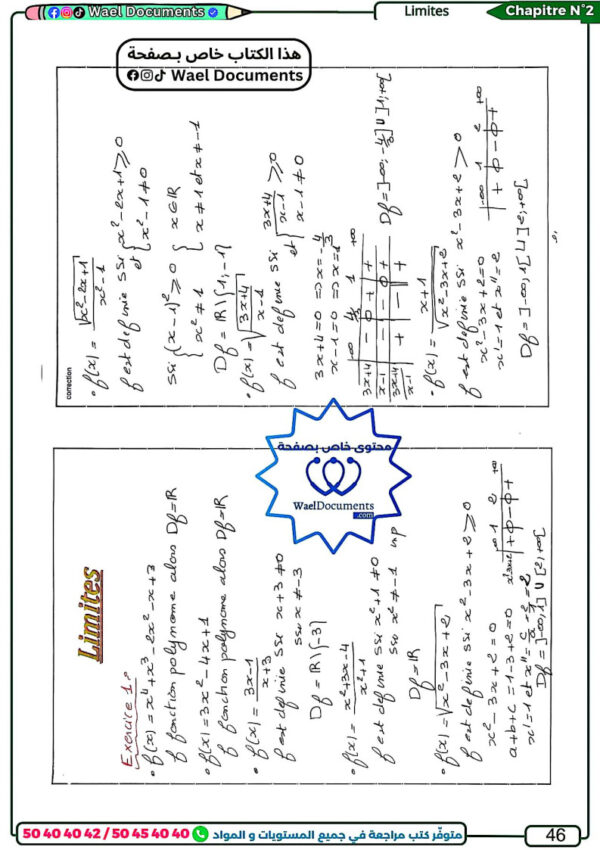 Wael Documents
Limites
Chapitre N°2
هذا الكتاب خاص بصفحة
Wael Documents
Limites
Exercice 1:
• f(x) = x⁴+x³-2x²-x+3
f fonction polynome alors Df=IR
• f(x) = 3x²-4x+1
f fonction polynome alors Df=IR
• f(x) = (3x-1)/(x+3)
f est definie ssi x+3≠0
ssi x≠-3
Df = IR\{-3}
• f(x) = (x²+3x-4)/(x²+1)
f est definie ssi x²+1≠0
ssi x²≠-1 imp
Df=IR
• f(x) = √(x²-3x+2)
f est definie ssi x²-3x+2⩾0
x²-3x+2=0
a+b+c=1-3+2=0
x'=1 et x''=c/a=2/1=2
-∞ 1 2 +∞
x²-3x+2 + 0 - 0 +
Df = ]-∞,1] ∪ [2,+∞[
correction
• f(x) = √(x²-2x+1)/(x²-1)
f est definie ssi { x²-2x+1⩾0
et x²-1≠0
ssi { (x-1)²⩾0 { x∈IR
x²≠1 x≠1 et x≠-1
Df = IR\{1,-1}
• f(x) = √((3x+4)/(x-1))
f est definie ssi { (3x+4)/(x-1) ⩾0
et x-1≠0
3x+4=0 ⇒ x=-4/3
x-1=0 ⇒ x=1
-∞ -4/3 1 +∞
3x+4 - 0 + +
x-1 - - 0 +
(3x+4)/(x-1) + - +
Df = ]-∞,-4/3] ∪ ]1,+∞[
• f(x) = (x+1)/√(x²-3x+2)
f est definie ssi x²-3x+2>0
x²-3x+2=0
x'=1 et x''=2
-∞ 1 2 +∞
+ 0 - 0 +
Df = ]-∞,1[ ∪ ]2,+∞[
محتوى خاص بصفحة
WaelDocuments
.com
50 40 40 42 / 50 45 40 40 متوفّر كتب مراجعة في جميع المستويات و المواد
46